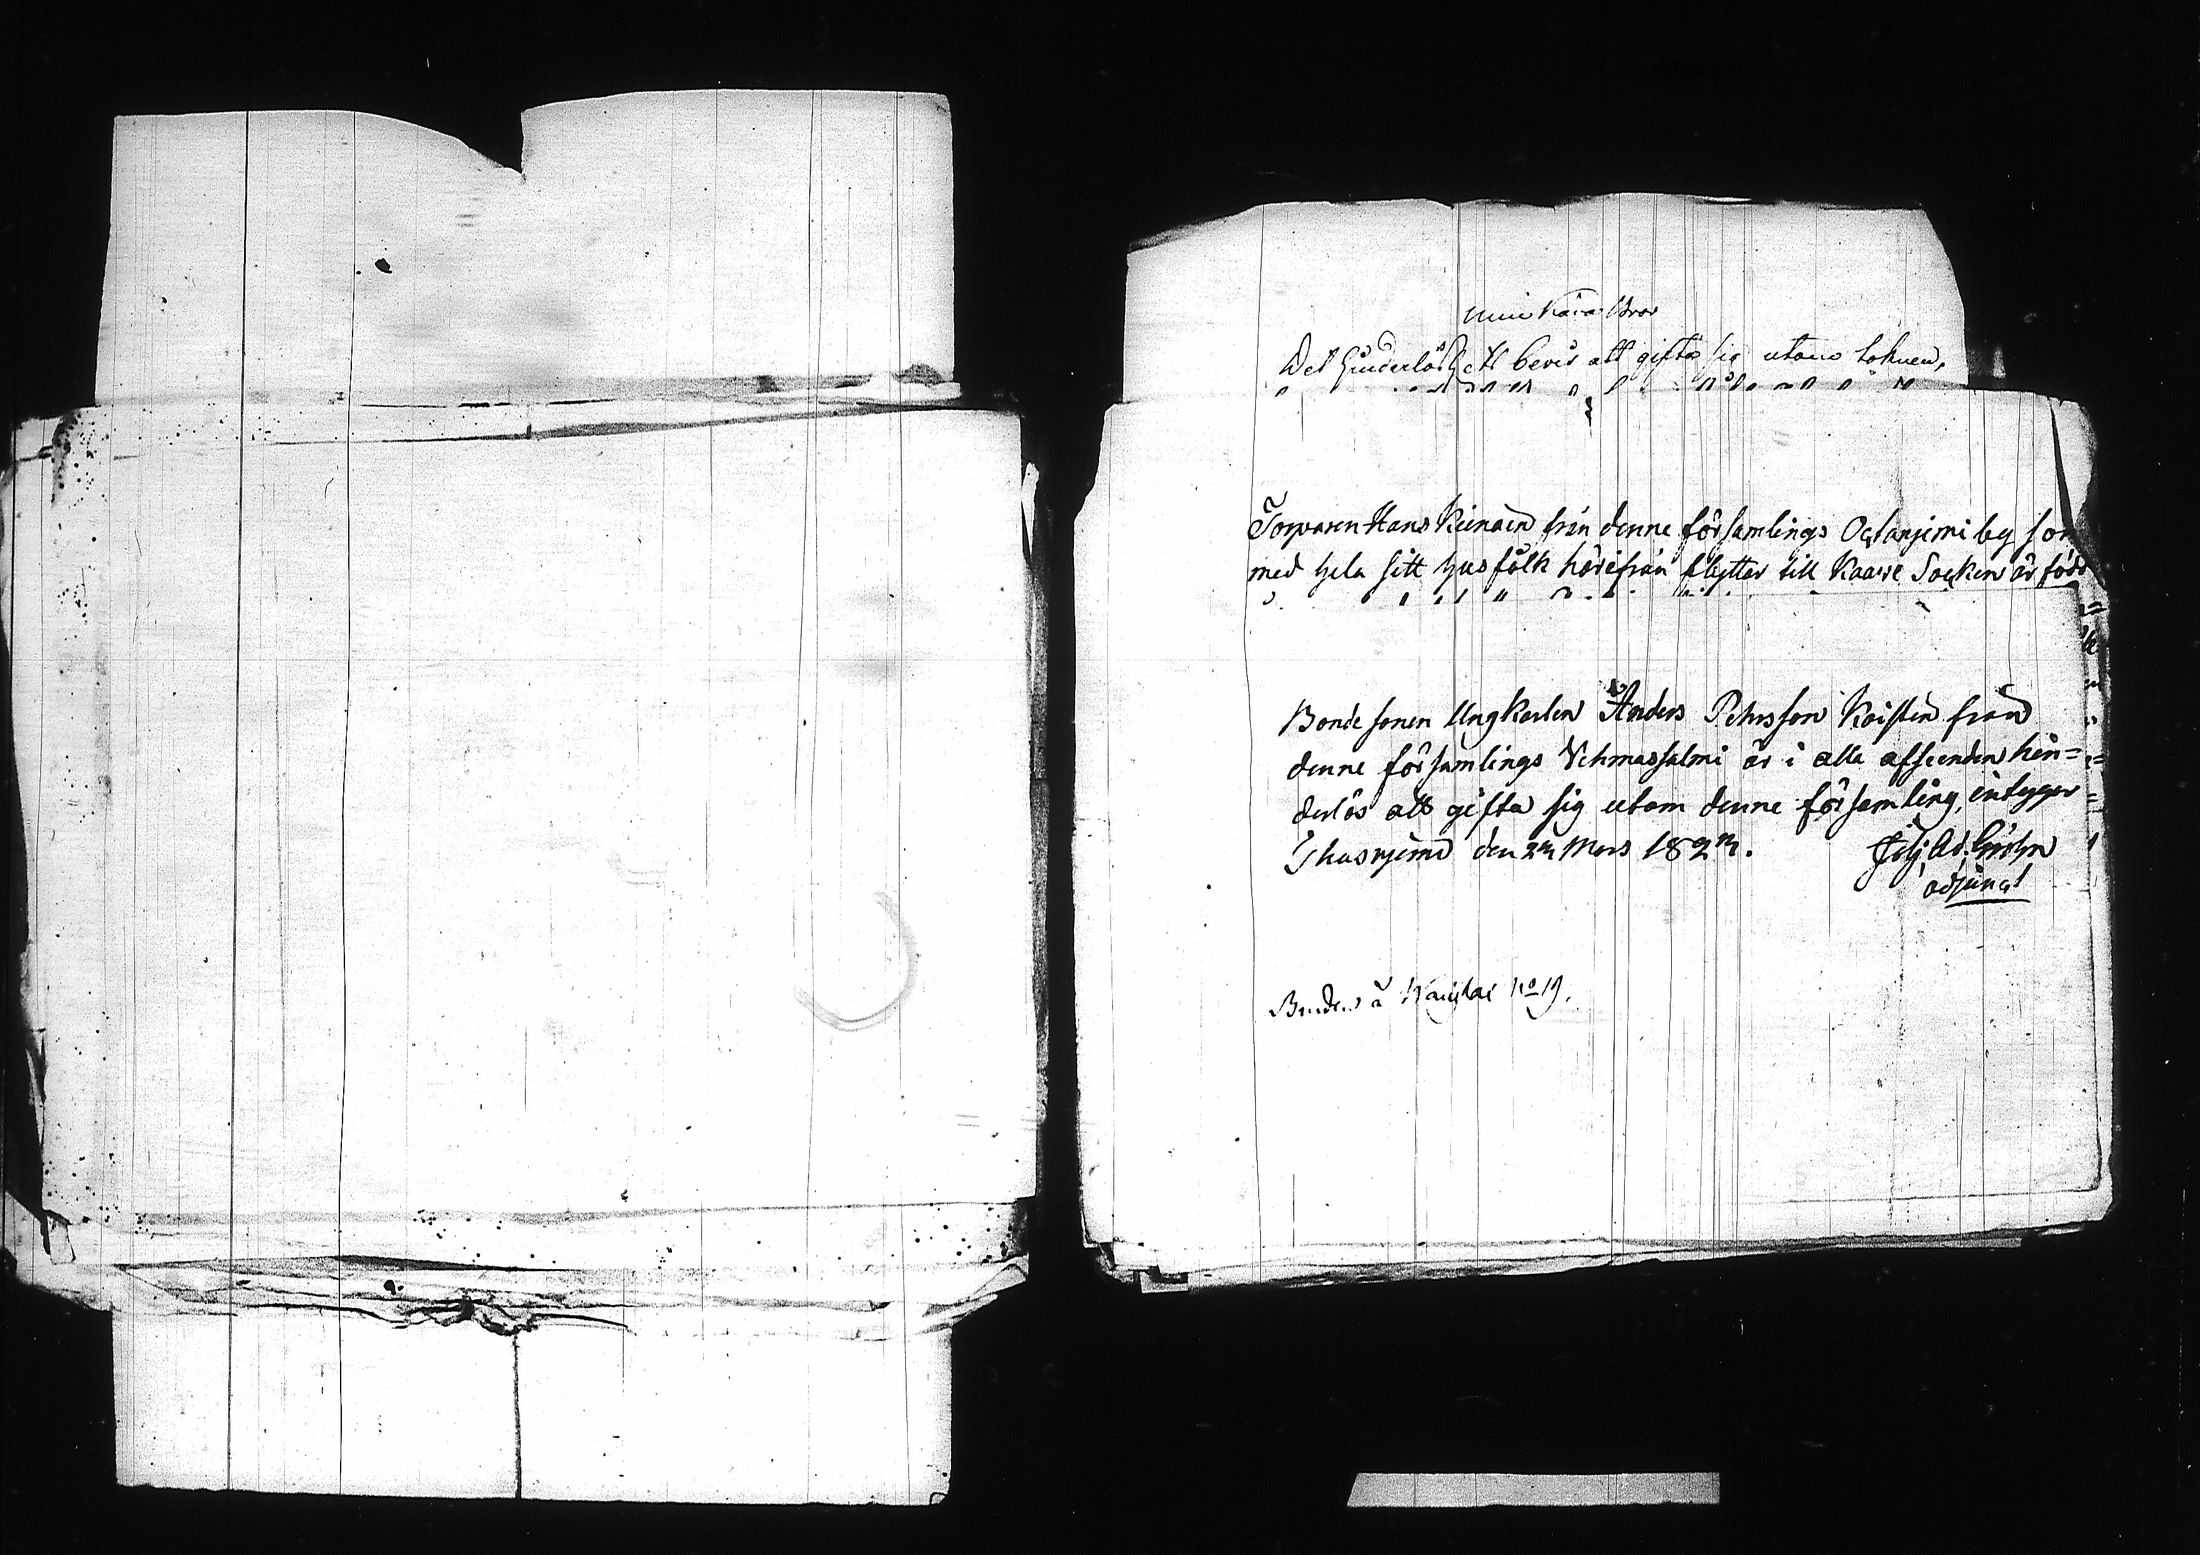 min kära Bror
Det Hinderlös ett bevis att gifta sig utom soknen,
Torparen Hans Keinaen från denne församlings Oglanjemi by som
med hela sitt husfolk härifrån flyttar till Kaawi Socken är född
Bonde sonen Ungkarlen Anders Pehrsson Koistin från
denne församlings Vehmassalmi är i alla afseenden hin=
derlös att gifta sig utom denne församling, intygar
den 24 Mars 182
Ad.
adjunct
å No 19.